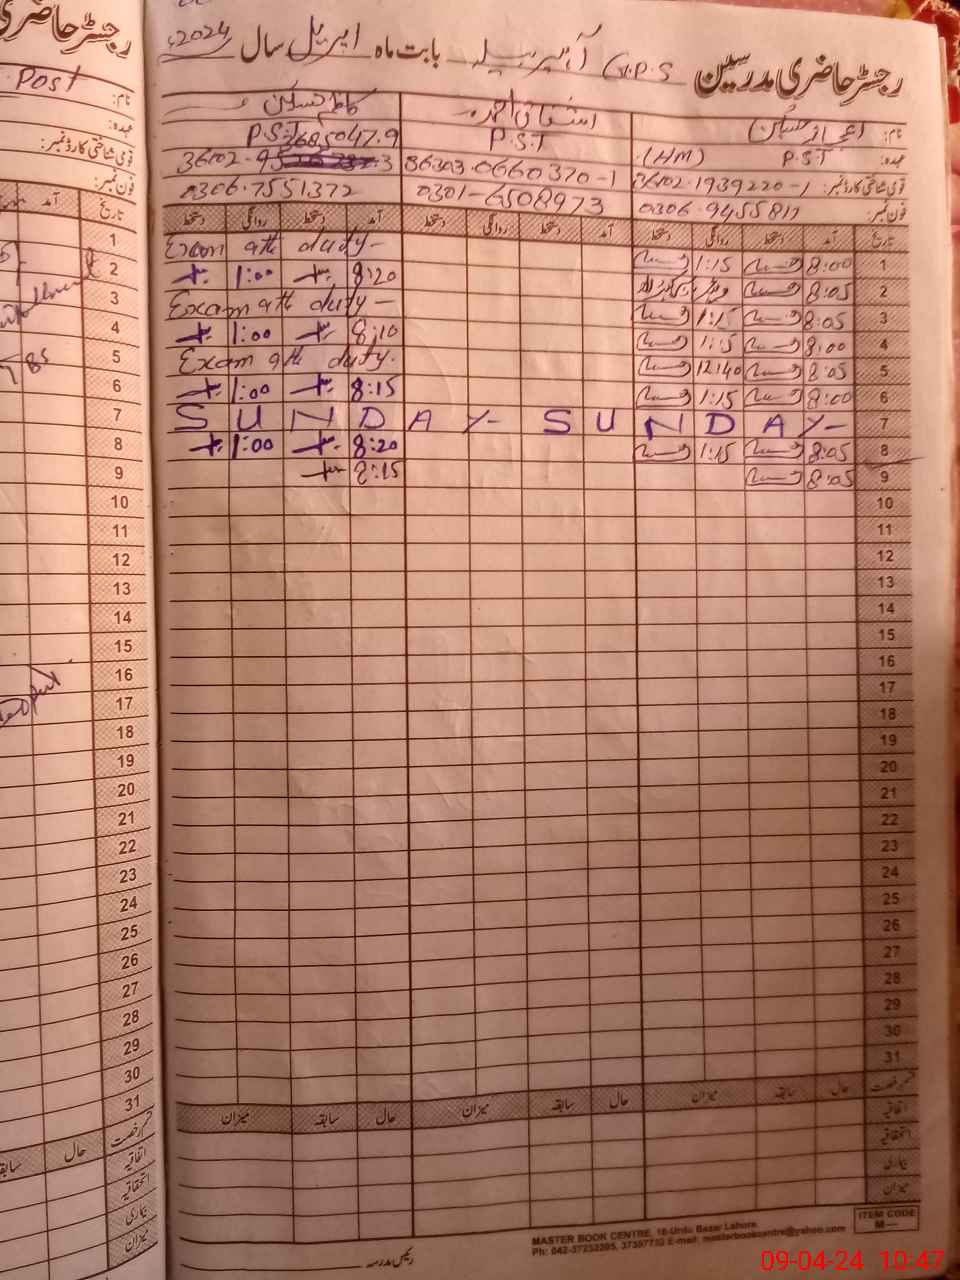 رجسٹر حاضری مدرسین G.P.S بابت ماہ اپریل سال 2024ء
نام: اعجاز حسین اشتیاق احمد کاظم حسین
عہدہ: P.S.T (HM) P.S.T P.S.T
قومی شناختی کارڈ نمبر: 36102-1939220-1 36303-0660370-1 36102-95
3685047-9
فون نمبر: 0306-9455811 0301-6508973 0306-7551372
تاریخ آمد دستخط روانگی دستخط آمد دستخط روانگی دستخط آمد دستخط روانگی دستخط
1 8:00 1:15 Exam 9th duty-
2 8:05 8:20 1:00
3 8:05 1:15 Exam 9th duty-
4 8:00 1:15 8:10 1:00
5 8:05 12:40 Exam 9th duty.
6 8:00 1:15 8:15 1:00
7 SUNDAY- SUNDAY-
8 8:05 1:15 8:20 1:00
9 8:05 8:15
10
11
12
13
14
15
16
17
18
19
20
21
22
23
24
25
26
27
28
29
30
31
قسم رخصت حال سابقہ میزان حال سابقہ میزان حال سابقہ میزان
اتفاقیہ
استحقاقیہ
بیماری
میزان
رئیس مدرسہ
MASTER BOOK CENTRE, 16-Urdu Bazar Lahore.
Ph: 042-37232205, 37397733 E-mail: masterbookcentre@yahoo.com
ITEM CODE
M—
09-04-24 10:47
رجسٹر حاضری
Post
نام:
عہدہ:
قومی شناختی کارڈ نمبر:
فون نمبر:
تاریخ آمد
1
2
3
4
5
6
7
8
9
10
11
12
13
14
15
16
17
18
19
20
21
22
23
24
25
26
27
28
29
30
31
قسم رخصت حال
اتفاقیہ
استحقاقیہ
بیماری
میزان